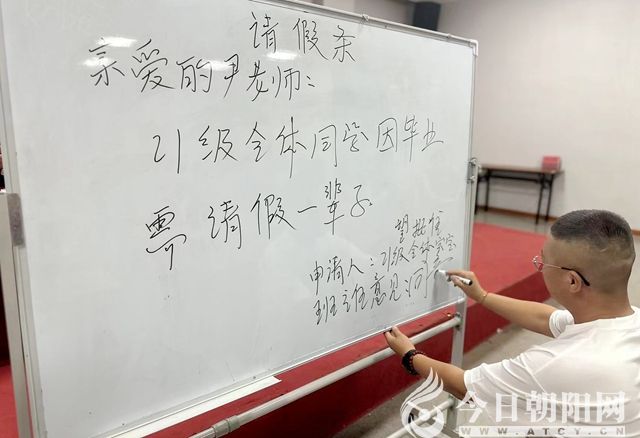 请假条
亲爱的尹老师:
21级全体同学因毕业
需请假一辈子
望批准
申请人:21级全体宝宝
班主任意见:同意
今日朝阳网
WWW.ATCY.CN